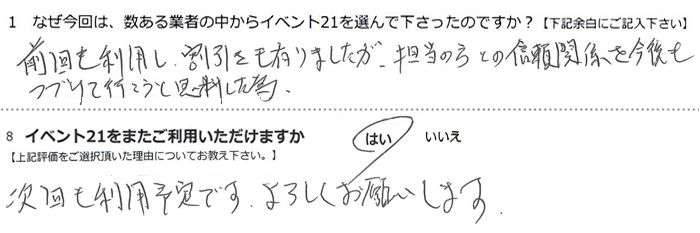 1 なぜ今回は、数ある業者の中からイベント21を選んで下さったのですか？【下記余白にご記入下さい】
前回も利用し、割引きも有りましたが、担当の方との信頼関係を今後も
つづけて行こうと思料した為、
8 イベント21をまたご利用いただけますか はい いいえ
【上記評価をご選択頂いた理由についてお教え下さい。】
次回も利用予定です。よろしくお願いします。